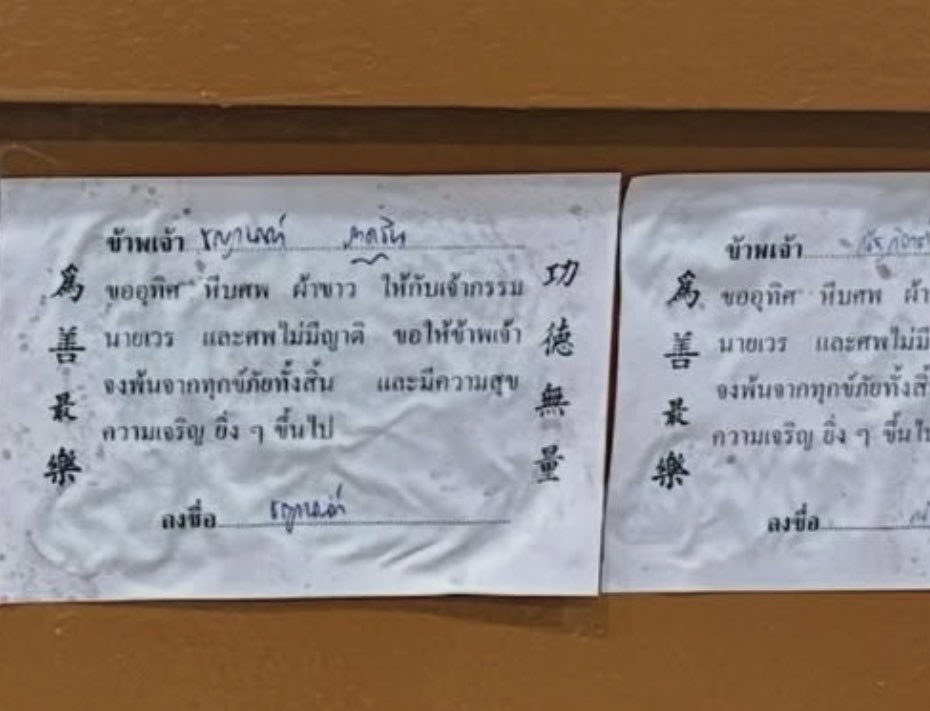 ข้าพเจ้า
ขออุทิศ หีบศพ ผ้าขาว ให้กับเจ้ากรรม
นายเวร และศพไม่มีญาติ ขอให้ข้าพเจ้า
จงพ้นจากทุกข์ภัยทั้งสิ้น และมีความสุข
ความเจริญ ยิ่ง ๆ ขึ้นไป
ลงชื่อ
為善最樂
功德無量
ข้าพเจ้า
ขออุทิศ หีบศพ
นายเวร
จงพ้นจากทุกข์ภัยทั้งสิ้
ความเจริญ ยิ่ง ๆ ขึ้นไ
ลงชื่อ
為善最樂